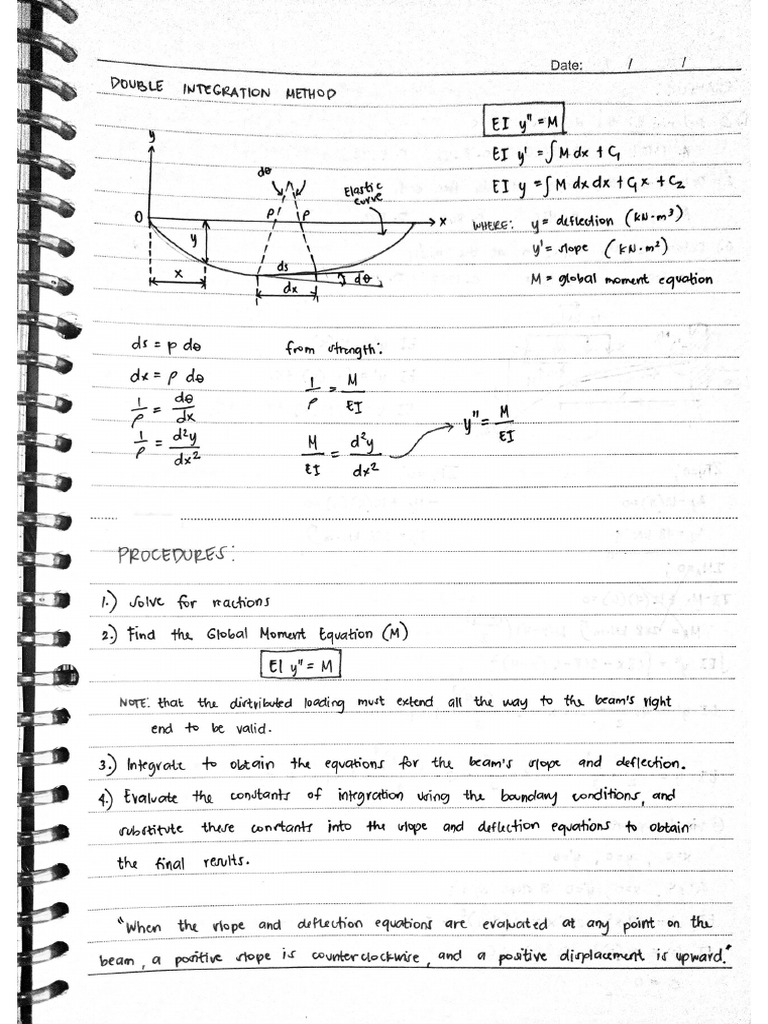 Date: / /
DOUBLE INTEGRATION METHOD
EI y" = M
EI y' = ∫M dx + C₁
EI y = ∫M dx dx + C₁x + C₂
WHERE: y = deflection (kN·m³)
y' = slope (kN·m²)
M = global moment equation
y
dθ
Elastic
curve
O
ρ' ρ
x
y
x
ds
dθ
dx
ds = ρ dθ
dx = ρ dθ
1/ρ = dθ/dx
1/ρ = d²y/dx²
from strength:
1/ρ = M/EI
M/EI = d²y/dx²
y" = M/EI
PROCEDURES:
1.) Solve for reactions
2.) Find the Global Moment Equation (M)
EI y" = M
NOTE: that the distributed loading must extend all the way to the beam's right
end to be valid.
3.) Integrate to obtain the equations for the beam's slope and deflection.
4.) Evaluate the constants of integration using the boundary conditions, and
substitute these constants into the slope and deflection equations to obtain
the final results.
"When the slope and deflection equations are evaluated at any point on the
beam, a positive slope is counterclockwise, and a positive displacement is upward."